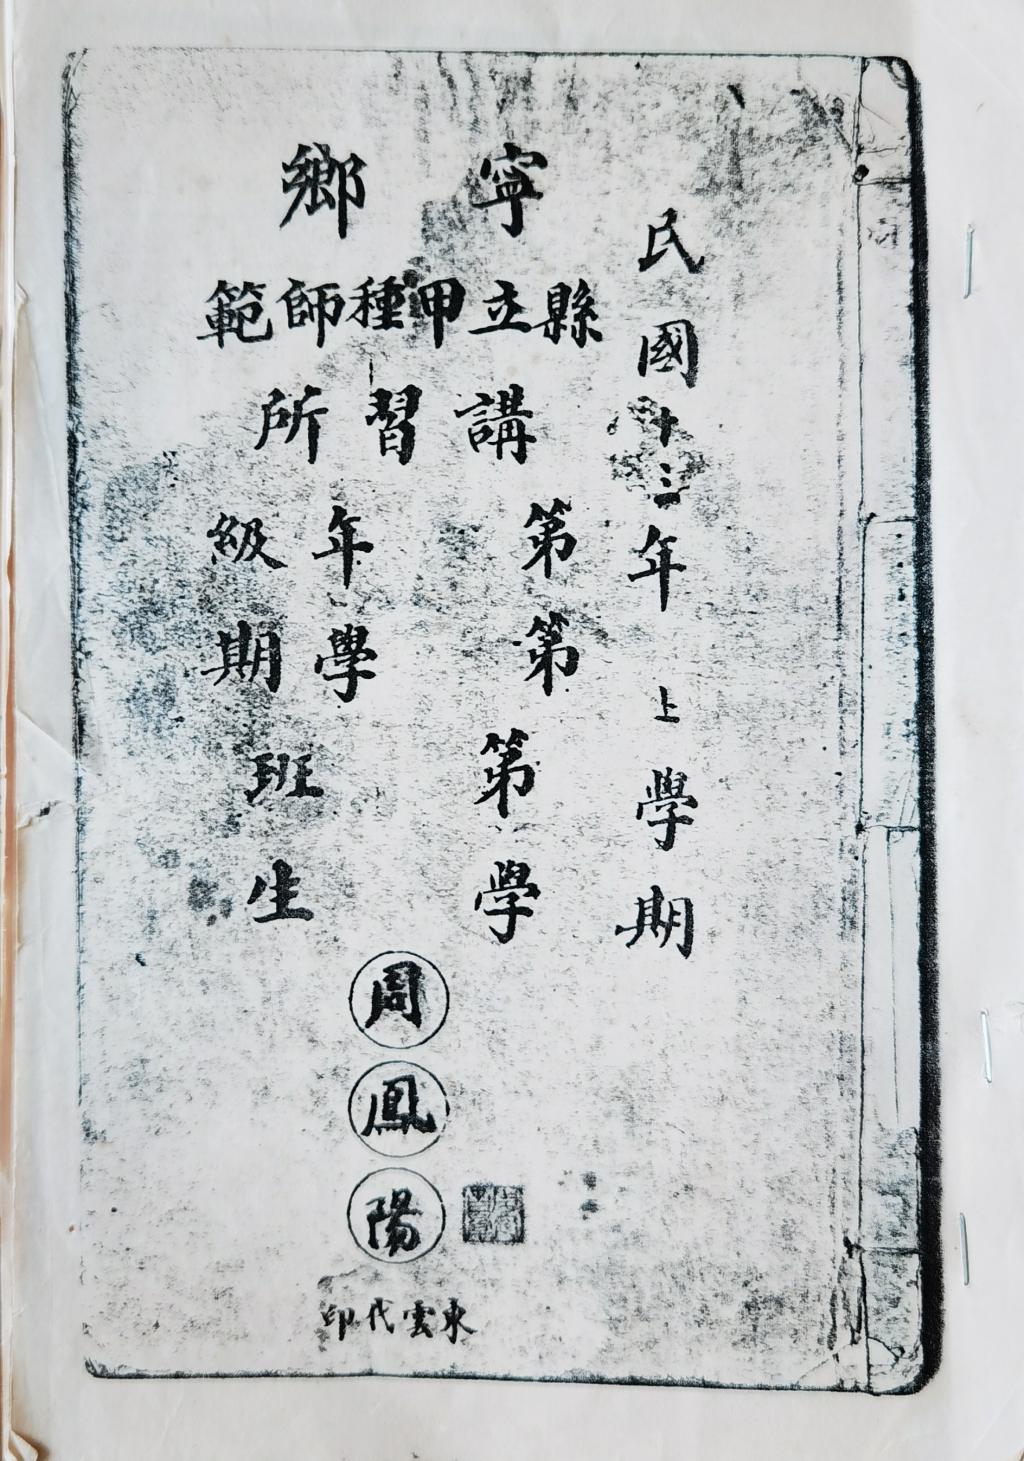 民國十三年上學期
寧鄉
縣立甲種師範
講習所
第年級
第學期
第班
學生
周鳳陽
東雲代印